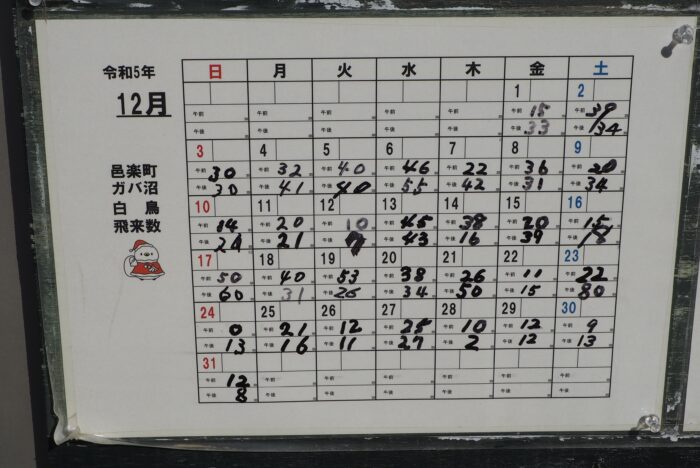 令和5年
12月
邑楽町
ガバ沼
白鳥
飛来数
日 月 火 水 木 金 土
1 2
午前 午前 午前 午前 午前 午前 15 午前 39
午後 午後 午後 午後 午後 午後 33 午後 34
3 4 5 6 7 8 9
午前 30 午前 32 午前 40 午前 46 午前 22 午前 36 午前 20
午後 30 午後 41 午後 40 午後 55 午後 42 午後 31 午後 34
10 11 12 13 14 15 16
午前 14 午前 20 午前 10 午前 45 午前 38 午前 20 午前 15
午後 24 午後 21 午後 午後 43 午後 16 午後 39 午後
17 18 19 20 21 22 23
午前 50 午前 40 午前 53 午前 38 午前 26 午前 11 午前 22
午後 60 午後 31 午後 26 午後 34 午後 50 午後 15 午後 80
24 25 26 27 28 29 30
午前 0 午前 21 午前 12 午前 25 午前 10 午前 12 午前 9
午後 13 午後 16 午後 11 午後 27 午後 2 午後 12 午後 13
31
午前 12 午前 午前 午前 午前 午前 午前
午後 8 午後 午後 午後 午後 午後 午後